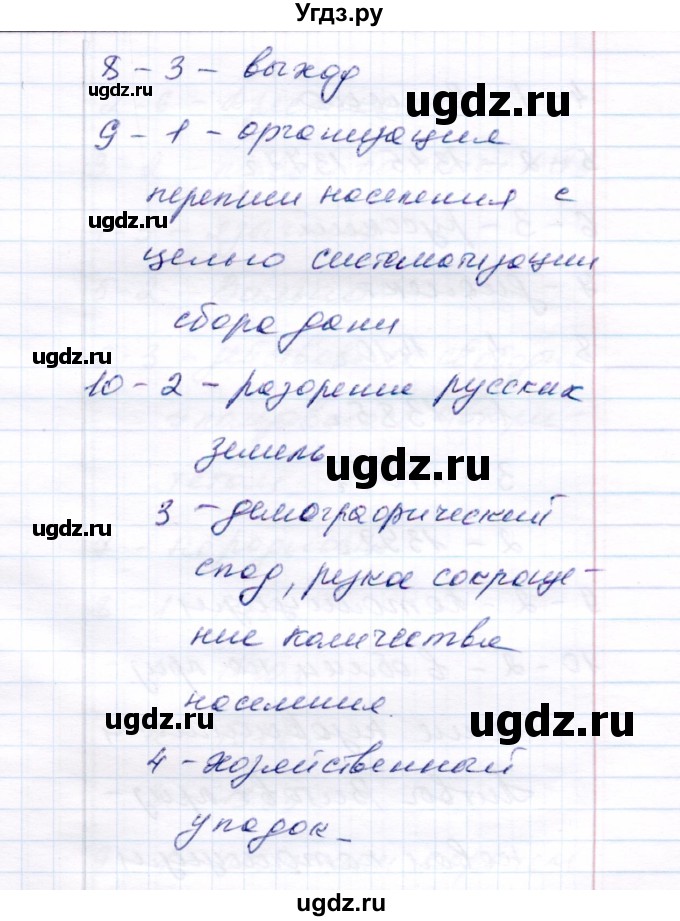 Угдз.ру
8 - 3 - выход
ugdz.ru ugdz.ru
9 - 1 - организация
переписи населения с
ugdz.ru
целью систематизации
сбора дани
ugdz.ru ugdz.ru
10 - 2 - разорение русских
земель
ugdz.ru
3 - демографический
ugdz.ru
спад, резкое сокраще-
ние количества
населения.
ugdz.ru ugdz.ru
4 - хозяйственный
упадок
ugdz.ru
ugdz.ru